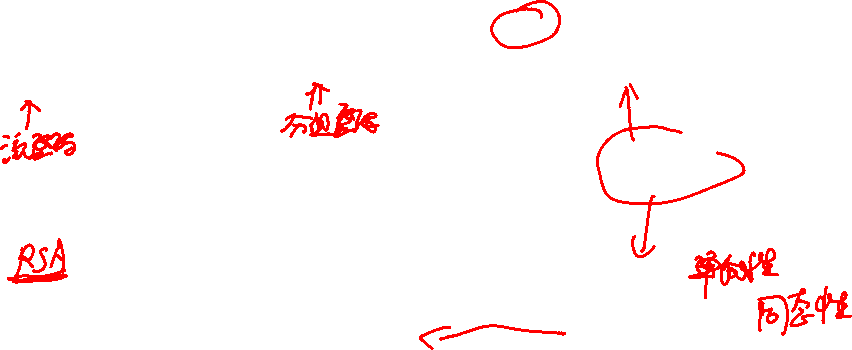 流密码
分组密码
RSA
单向性
同态性